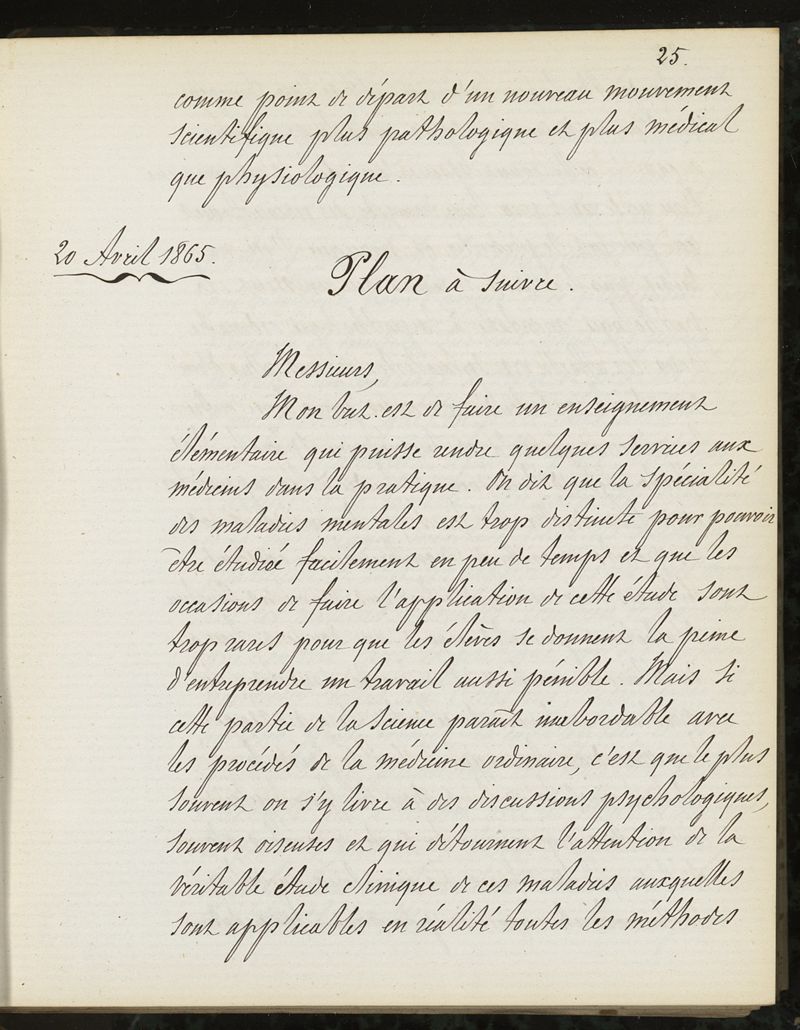 25.
comme point de départ d'un nouveau mouvement
scientifique plus pathologique et plus médical
que physiologique.
20 Avril 1865.
Plan à suivre.
Messieurs,
Mon but est de faire un enseignement
élémentaire qui puisse rendre quelques services aux
médecins dans la pratique. On dit que la spécialité
des maladies mentales est trop distincte pour pouvoir
être étudiée facilement en peu de temps et que les
occasions de faire l'application de cette étude sont
trop rares pour que les élèves se donnent la peine
d'entreprendre un travail aussi pénible. Mais si
cette partie de la science paraît inabordable avec
les procédés de la médecine ordinaire, c'est que le plus
souvent on s'y livre à des discussions psychologiques,
souvent oiseuses et qui détournent l'attention de la
véritable étude clinique de ces maladies auxquelles
sont applicables en réalité toutes les méthodes